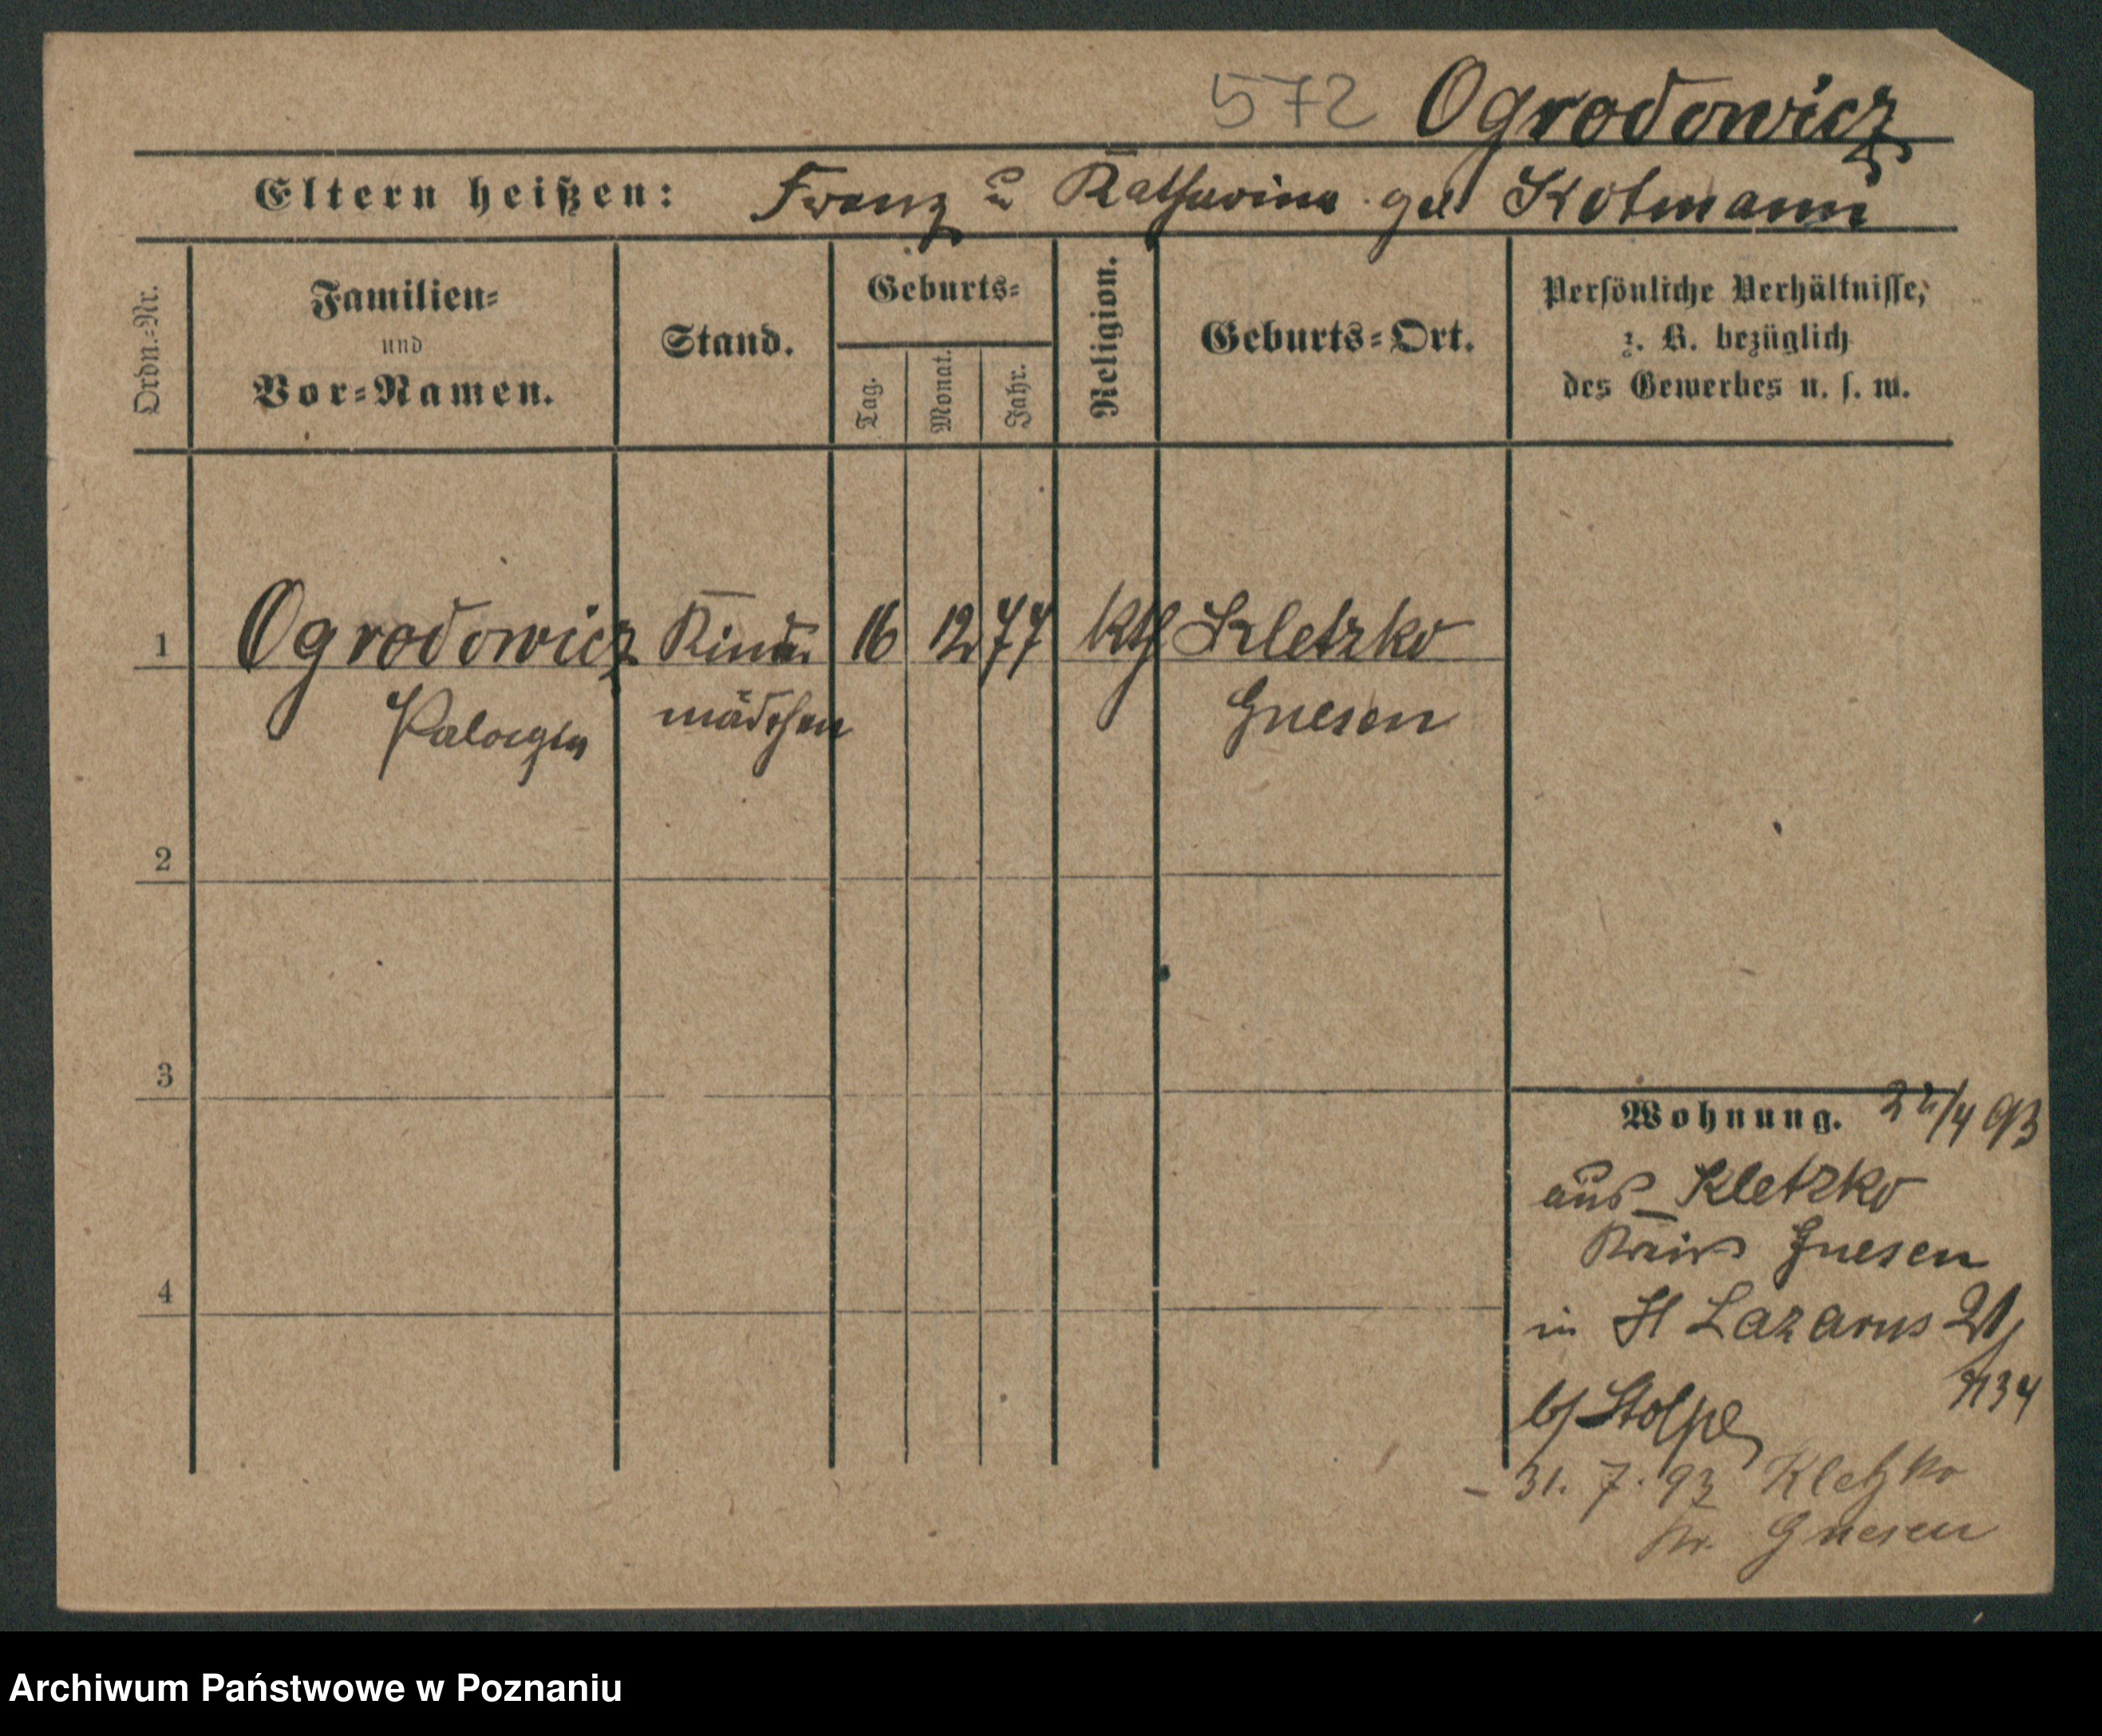 572 Ogrodowicz
Eltern heißen: Franz u Katharina geb Kotmann
Ordn.=Nr.
Familien=
und
Vor=Namen.
Stand.
Geburts=
Tag.
Monat.
Jahr.
Religion.
Geburts=Ort.
Persönliche Verhältnisse,
z. B. bezüglich
des Gewerbes u. s. w.
1 Ogrodowicz Kinder 16 12 77 kth Kletzko
mädchen Gnesen
2
3
4
Wohnung. 22/4 93
aus Kletzko
Kreis Gnesen
in St Lazarus
b/ Stolpe
- 31. 7. 93 Kletzko
Kr. Gnesen
Archiwum Państwowe w Poznaniu